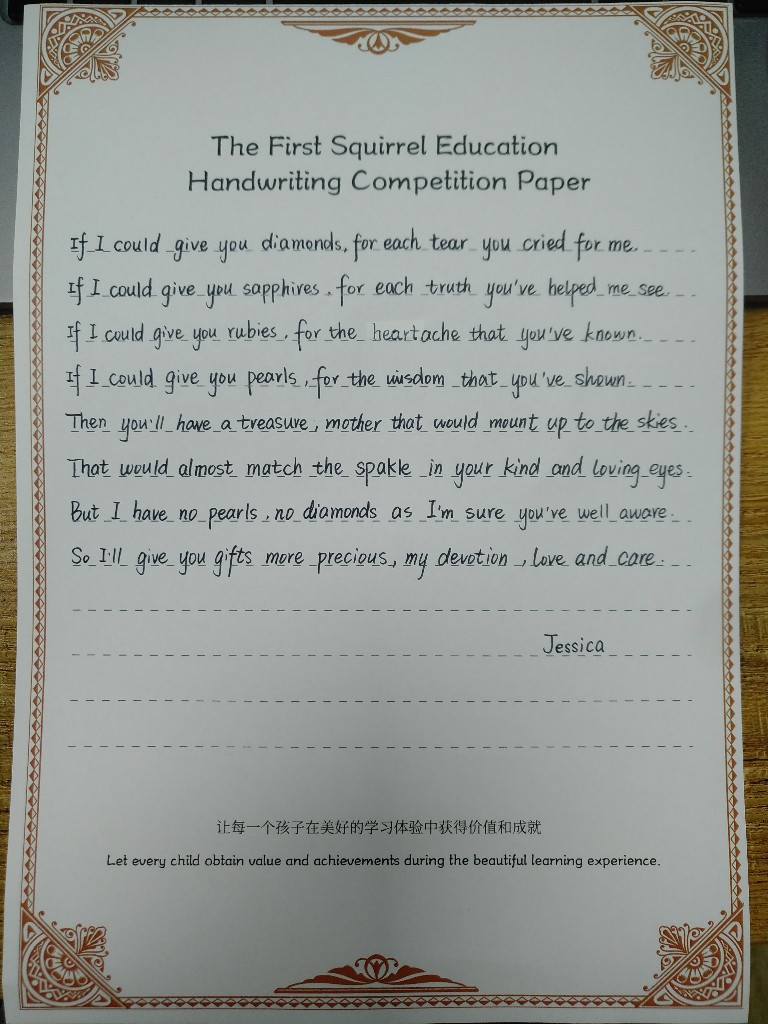 The First Squirrel Education
Handwriting Competition Paper
If I could give you diamonds, for each tear you cried for me.
If I could give you sapphires, for each truth you've helped me see.
If I could give you rubies, for the heartache that you've known.
If I could give you pearls, for the wisdom that you've shown.
Then you'll have a treasure, mother that would mount up to the skies.
That would almost match the spakle in your kind and loving eyes.
But I have no pearls, no diamonds as I'm sure you've well aware.
So I'll give you gifts more precious, my devotion, love and care.
Jessica
让每一个孩子在美好的学习体验中获得价值和成就
Let every child obtain value and achievements during the beautiful learning experience.